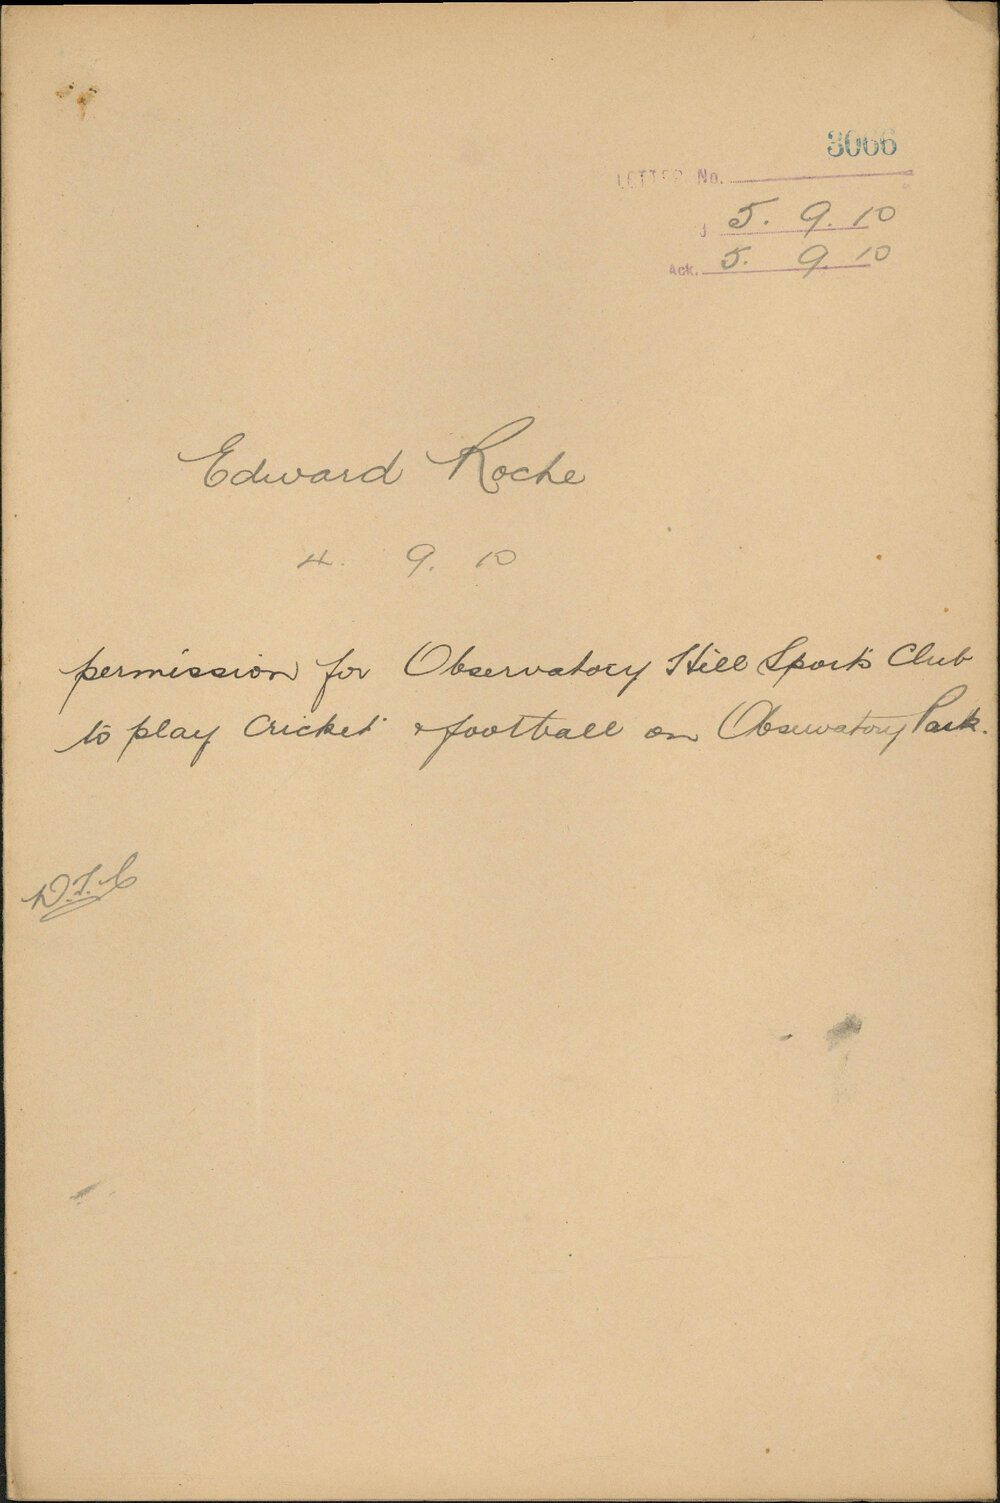 3066
LETTER No.
5. 9. 10
Ack. 5. 9. 10
Edward Roche
4. 9. 10
permission for Observatory Hill Sports Club
to play Cricket & football on Observatory Park.